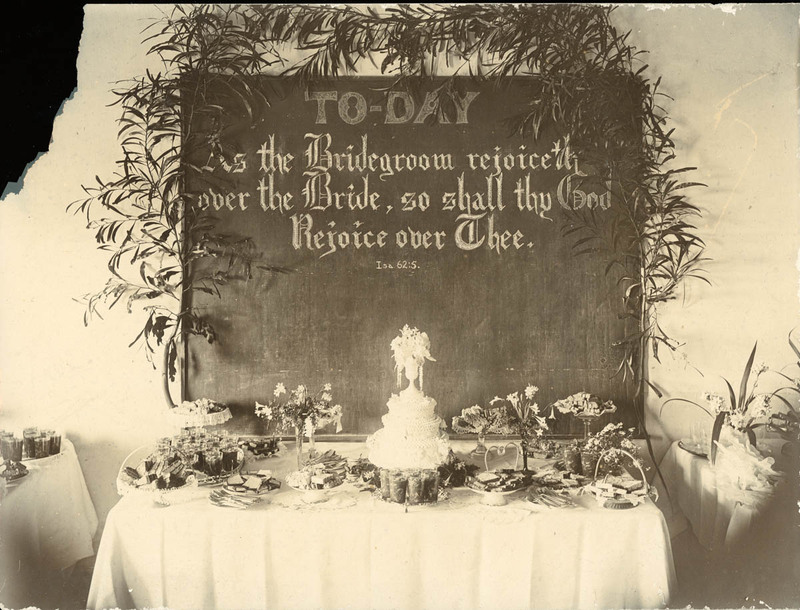 TO-DAY
As the Bridegroom rejoiceth
over the Bride, so shall thy God
Rejoice over Thee.
Isa 62:5.